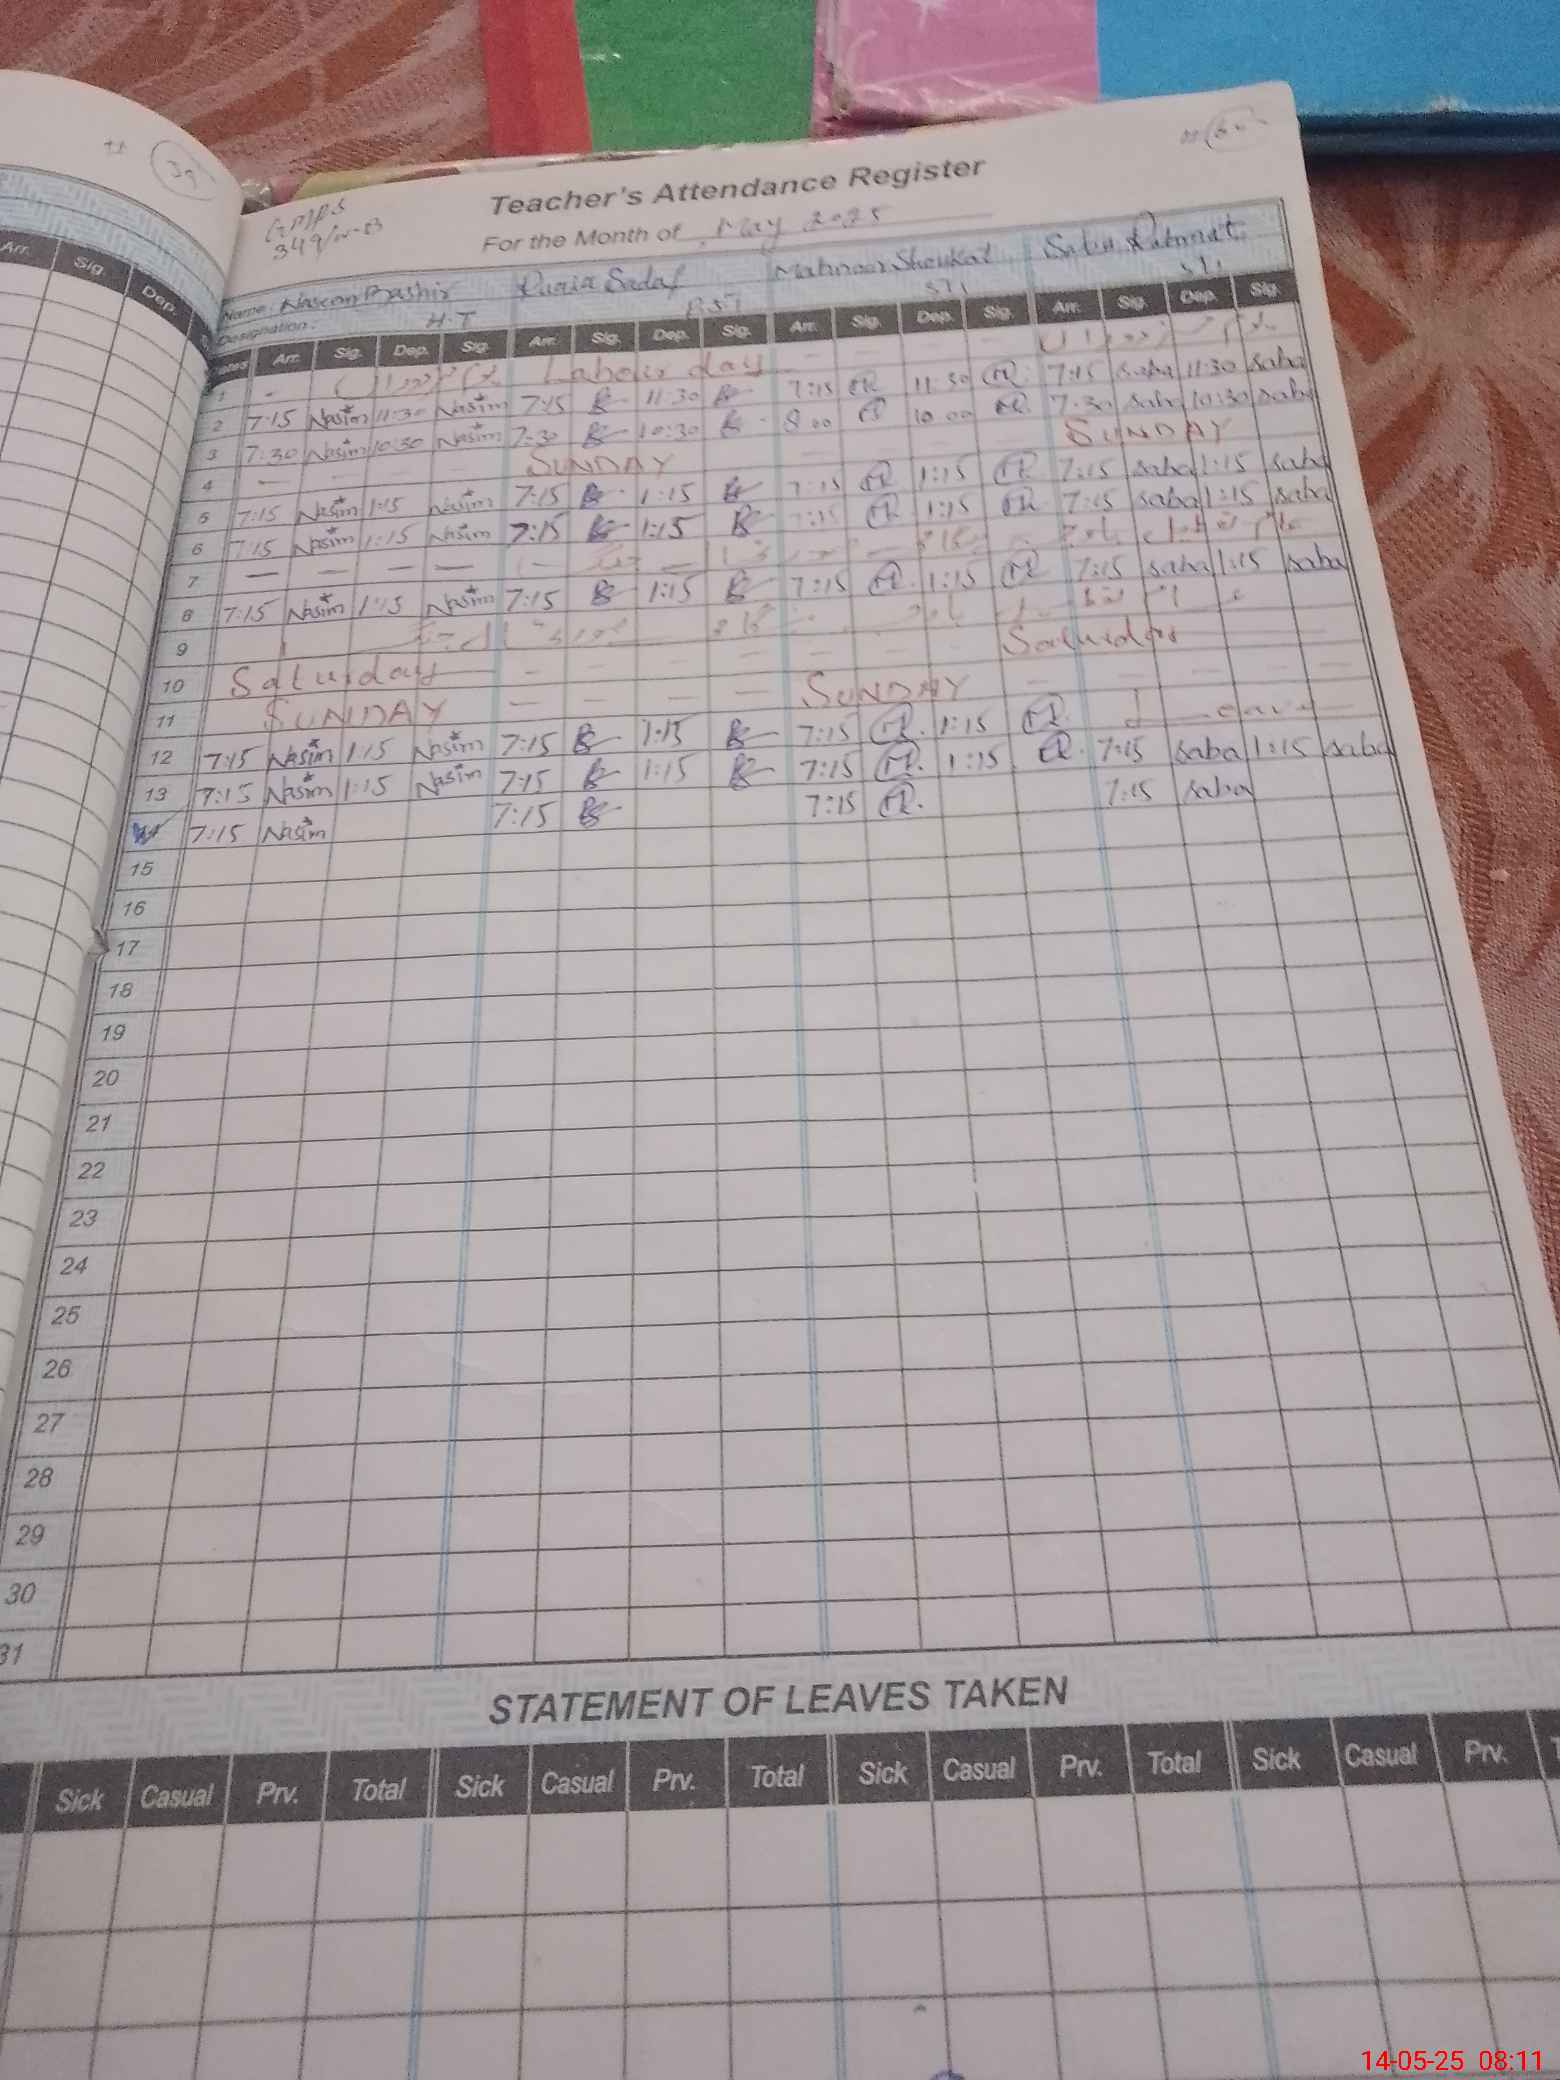 39
Arr. Sig. Dep.
GMPS
349/
Teacher's Attendance Register
For the Month of May 2025
Name: Bashir Sadaf Mahnoor Shoukat Saba Rahmat
Designation: H.T PST STI STI
Arr. Sig. Dep. Sig. Arr. Sig. Dep. Sig. Arr. Sig. Dep. Sig. Arr. Sig. Dep. Sig.
1 Labour day
2 7:15 Nasim 11:30 Nasim 7:15 11:30 7:15 11:30 7:15 saba 11:30 saba
3 7:30 Nasim 10:30 Nasim 7:30 10:30 8:00 10:00 7:30 saba 10:30 saba
4 SUNDAY SUNDAY
5 7:15 Nasim 1:15 Nasim 7:15 1:15 7:15 1:15 7:15 saba 1:15 saba
6 7:15 Nasim 1:15 Nasim 7:15 1:15 7:15 1:15 7:15 saba 1:15 saba
7
8 7:15 Nasim 1:15 Nasim 7:15 1:15 7:15 1:15 7:15 saba 1:15 saba
9
10 Saturday Saturday
11 SUNDAY SUNDAY
12 7:15 Nasim 1:15 Nasim 7:15 1:15 7:15 1:15 Leave
13 7:15 Nasim 1:15 Nasim 7:15 1:15 7:15 1:15 7:15 saba 1:15 saba
14 7:15 Nasim 7:15 7:15 7:15 saba
15
16
17
18
19
20
21
22
23
24
25
26
27
28
29
30
31
STATEMENT OF LEAVES TAKEN
Sick Casual Prv. Total Sick Casual Prv. Total Sick Casual Prv. Total Sick Casual Prv.
14-05-25 08:11